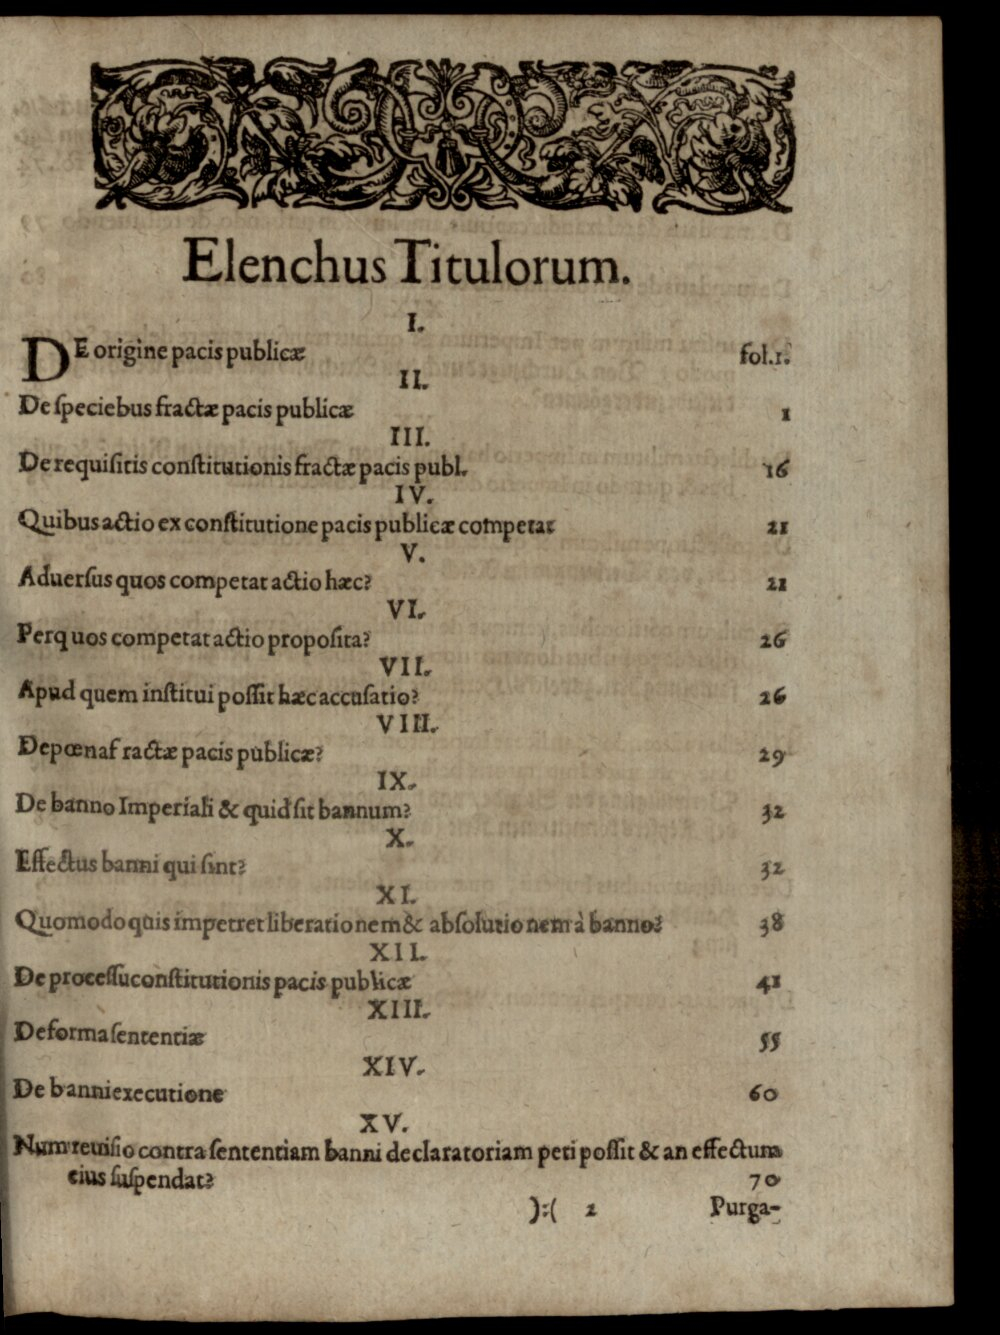 Elenchus Titulorum.
I.
DE origine pacis publicæ fol.1.
II.
De speciebus fractæ pacis publicæ 1
III.
De requisitis constitutionis fractæ pacis publ. 16
IV.
Quibus actio ex constitutione pacis publicæ competat 21
V.
Aduersus quos competat actio hæc? 21
VI.
Perquos competat actio proposita? 26
VII.
Apud quem institui possit hæc accusatio? 26
VIII.
De pœna fractæ pacis publicæ? 29
IX.
De banno Imperiali & quid sit bannum? 32
X.
Effectus banni qui sint? 32
XI.
Quomodo quis impetret liberationem & absolutionem à banno? 38
XII.
De processu constitutionis pacis publicæ 41
XIII.
De forma sententiæ 55
XIV.
De banni executione 60
XV.
Num reuisio contra sententiam banni declaratoriam peti possit & an effectum
eius suspendat? 70
):( 2 Purga-